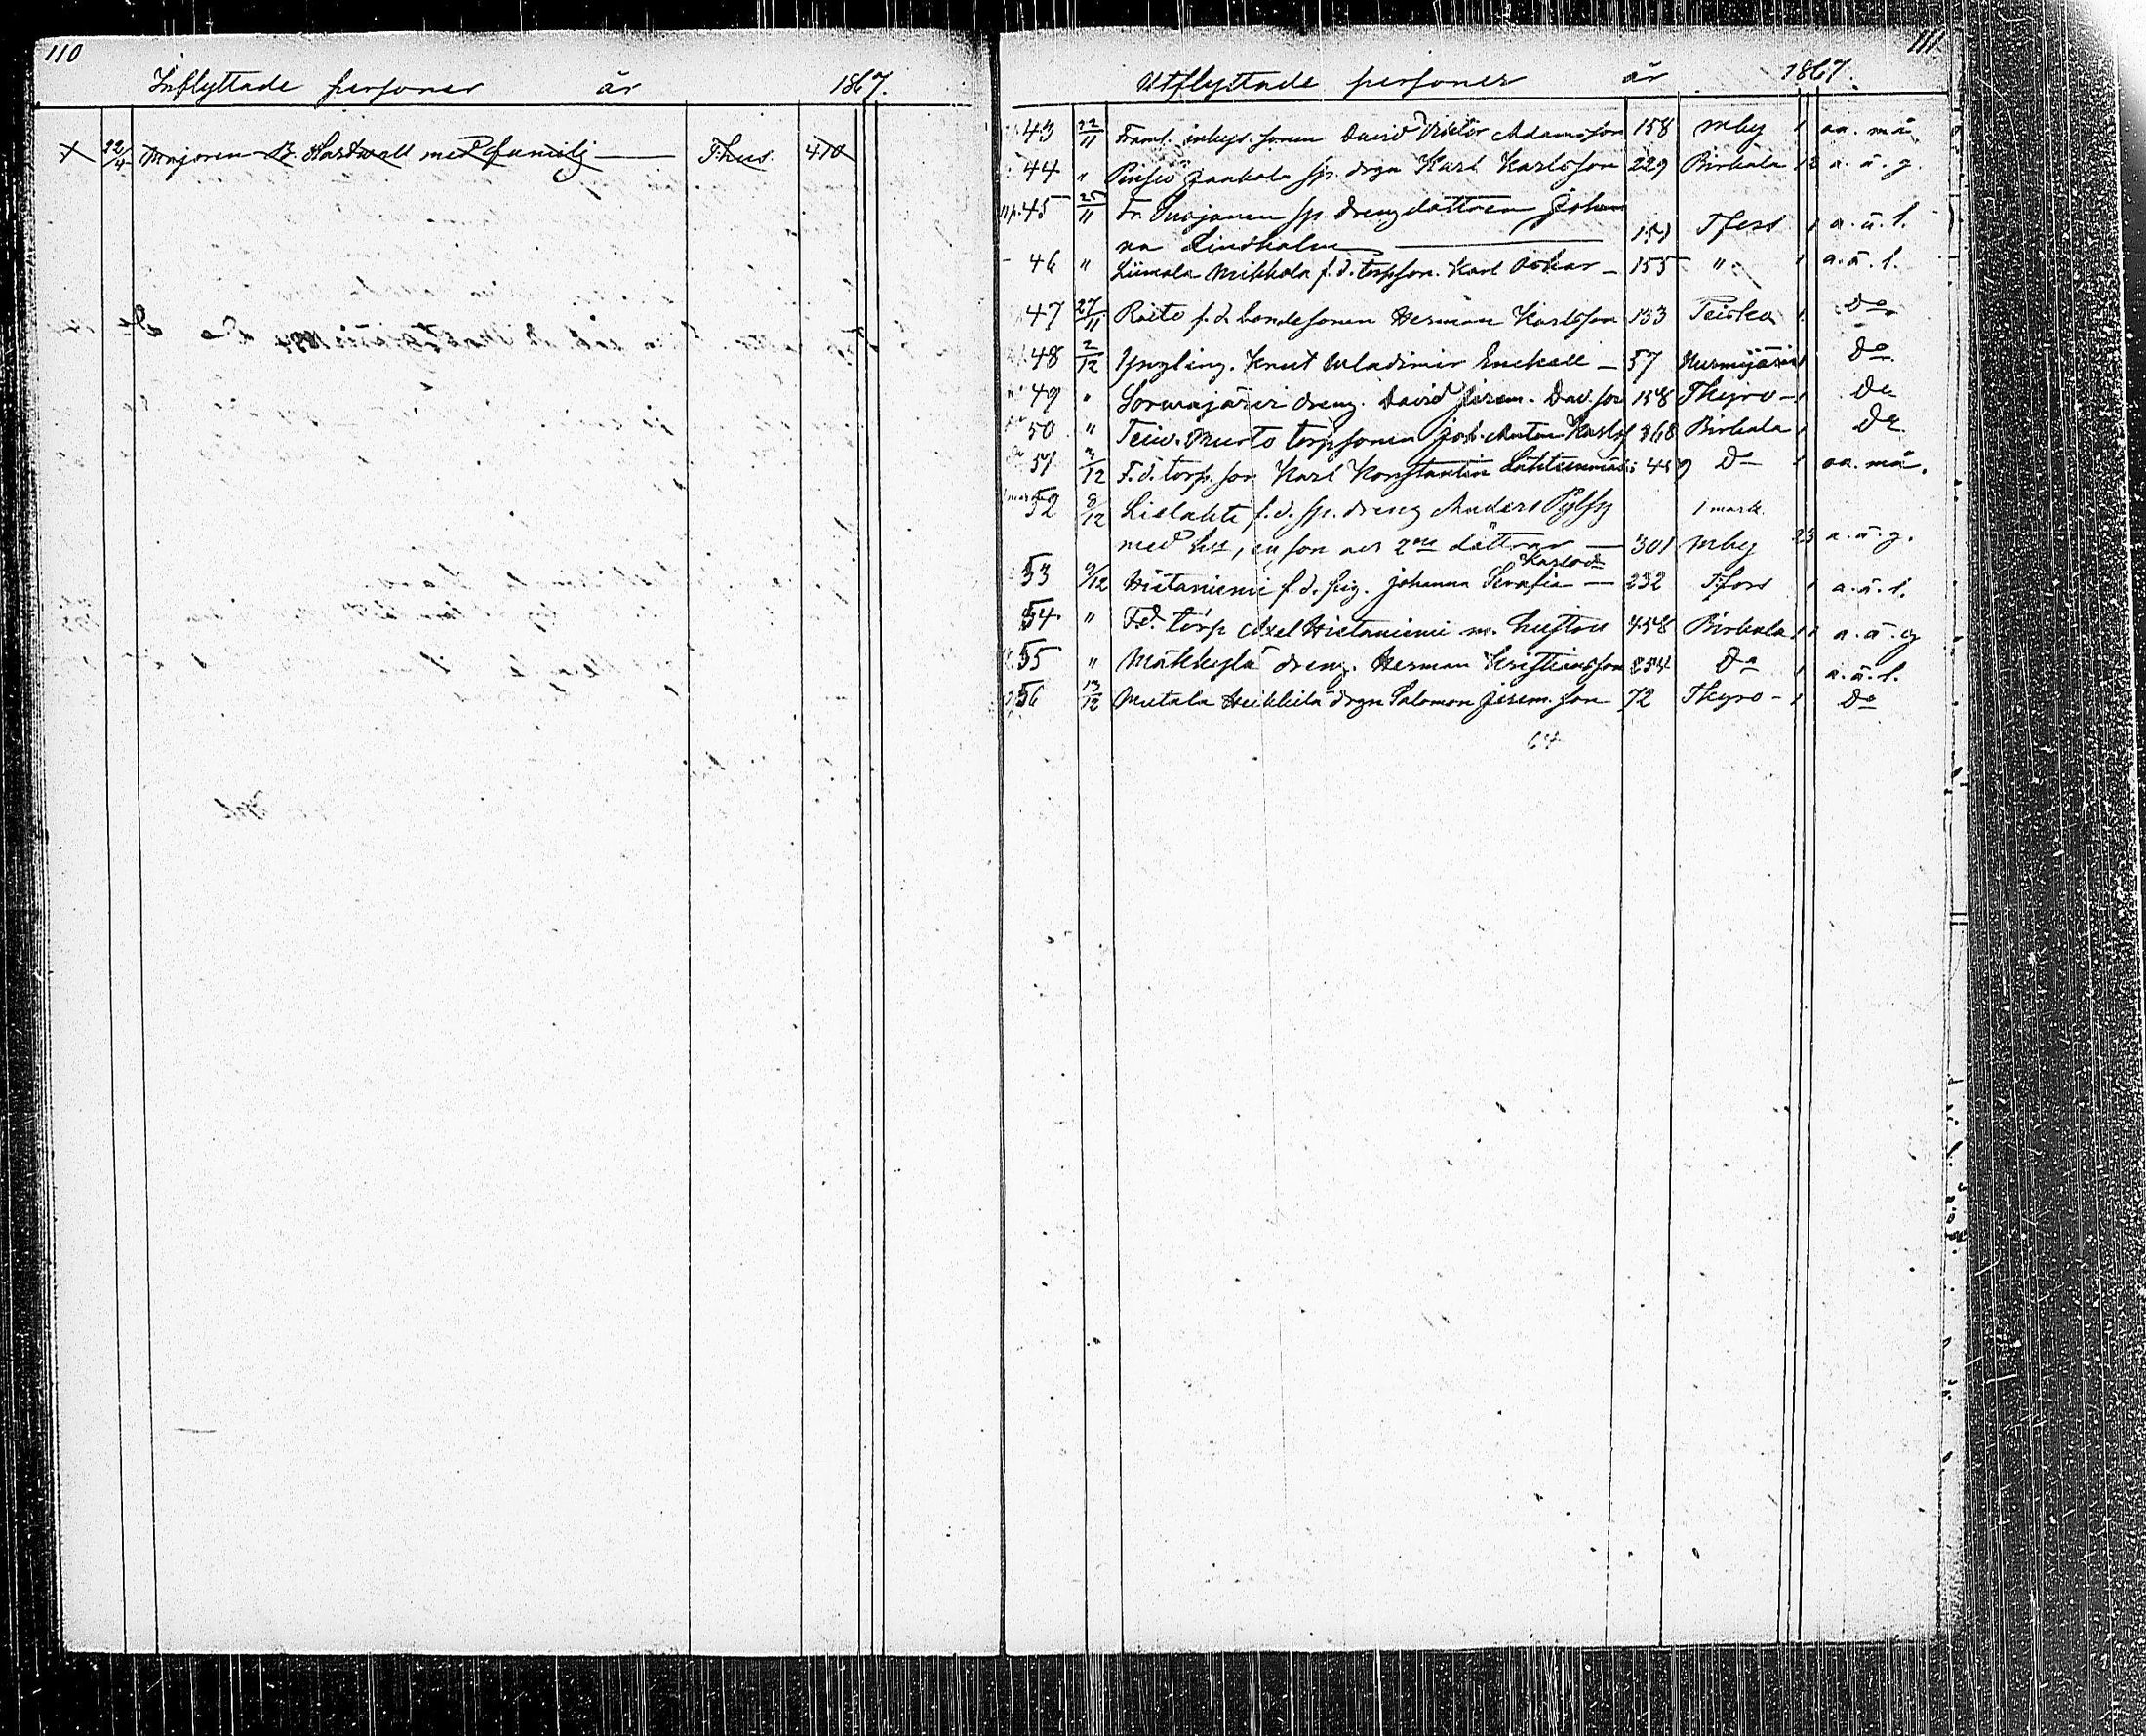 110
Inflyttade personer år 1867.
x 22/4 Majoren B. Hartwall med familj — T:hus. 410
111
Utflyttade personer år 1867.
43 22/11 Framl. inhys. sonen David Viktor Adamsson 158 Mby 1 aa. må
44 " Pinsiö Jaakola sp. drgn Karl Karlsson 229 Birkala 12 a. ä. g.
45 25/11 Fr. Suojanen sp. drengdottren Johan
na Lindholm — 151 Tfors 1 a. ä. l.
46 " Liimola Mikkola f. d. torpson. Karl Oskar — 155 " 1 a. ä. l.
47 27/11 Raito f. d. bondesonen Herman Karlsson 153 Teisko 1 Do
48 2/12 Yngling. Knut Wladimir Enckell — 57 Nurmijärvi 1 Do
49 " Sorwajärvi dreng. David Jerem. Dav.son 158 Tkyro — 1 Do
50 " Teiw. Murto torpsonen Joh. Anton Karlss 368 Birkala 1 Do
51 3/12 F. d. torp. son Karl Konstantin Lähteenmäki 459 Do 1 aa. må.
52 8/12 Lielahti f. d. sp. dreng Anders Pylsy 1 mark.
med hu, en son och 2ne döttrar — 301 Mby 23 a. ä. g.
Karlsdr
53 9/12 Hietaniemi f. d. pig. Johanna Serafia — 232 Tfors 1 a. ä. l.
54 " F.d. torp Axel Hietaniemi m. hustru 458 Birkala 11 a. ä. g
55 " Mäkkylä dreng. Herman Kristiansson 254 Do 1 a. ä. l.
56 13/12 Mutala Heikkilä drgn Salomon Jerem. son 72 Tkyro — 1 Do
64